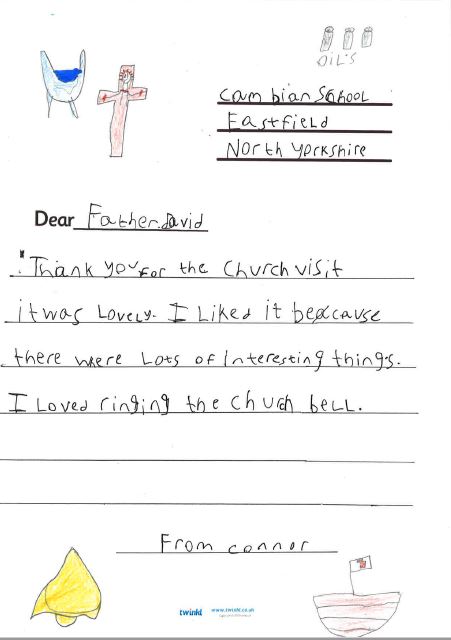 OIL'S
Cambian School
Eastfield
North Yorkshire
Dear Father David
Thank you for the Church visit
it was Lovely. I Liked it because
there where Lots of Interesting things.
I Loved ringing the Church bell.
From connor
twinkl www.twinkl.co.uk